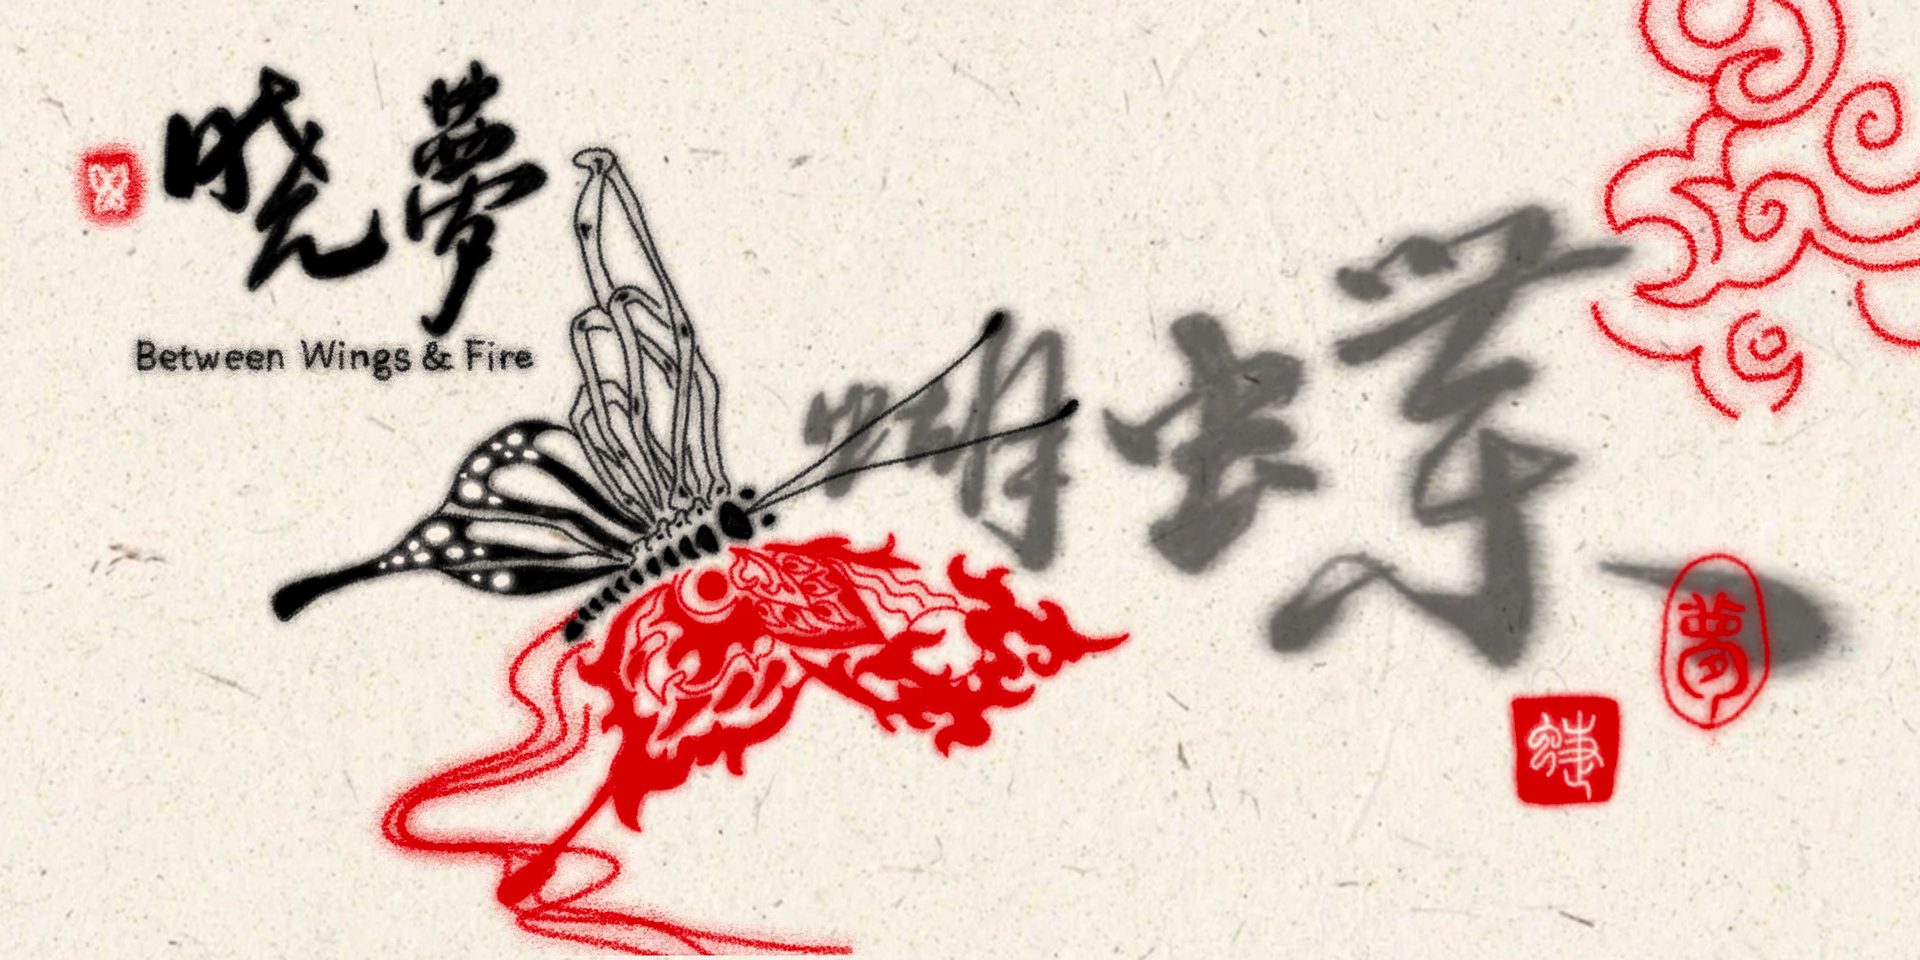 曉夢
Between Wings & Fire
蝴蝶
夢